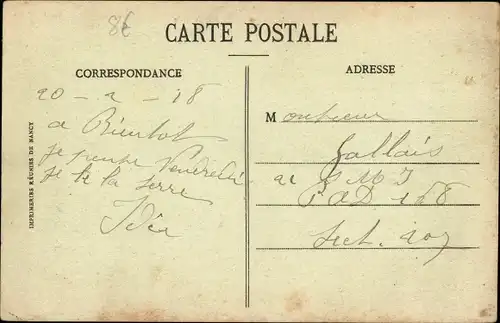 8€
CARTE POSTALE
CORRESPONDANCE
ADRESSE
20 - 2 - 18
a Bientot
je pense Vendredi
je te la serre
Monsieur
Gallais
PAD 168
Sect. 207
IMPRIMERIES RÉUNIES DE NANCY